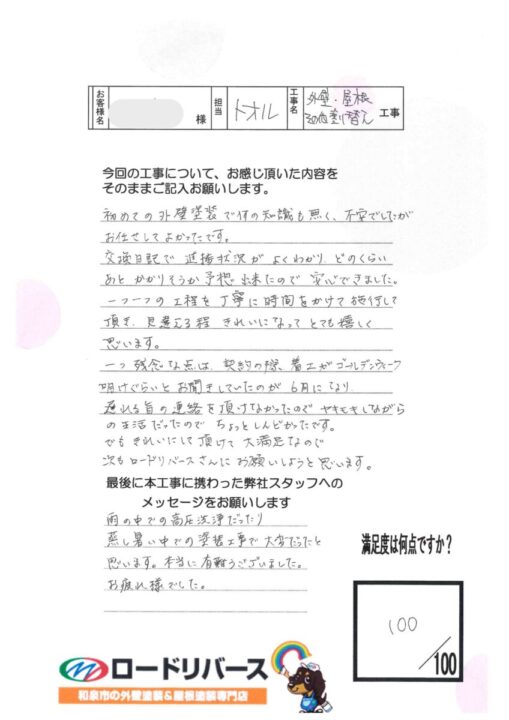 お客様名
様
担当
トオル
工事名
外壁・屋根
工事
今回の工事について、お感じ頂いた内容を
そのままご記入お願いします。
初めての外壁塗装で何の知識も無く、不安でしたが
お任せしてよかったです。
交換日記で進捗状況がよくわかり、どのくらい
あとかかりそうか予想出来たので安心できました。
一つ一つの工程を丁寧に時間をかけて施行して
頂き、見違える程きれいになってとても嬉しく
思います。
一つ残念な点は、契約の際、着工がゴールデンウィーク
明けぐらいとお聞きしていたのが6月になり、
遅れる旨の連絡を頂けなかったのでヤキモキしながら
の生活だったのでちょっとしんどかったです。
でもきれいにして頂けて大満足なので
次もロードリバースさんにお願いしようと思います。
最後に本工事に携わった弊社スタッフへの
メッセージをお願いします
雨の中での高圧洗浄だったり
蒸し暑い中での塗替工事で大変だったと
思います。本当に有難うございました。
お疲れ様でした。
満足度は何点ですか?
100
/100
ロードリバース
和泉市の外壁塗装&屋根塗装専門店